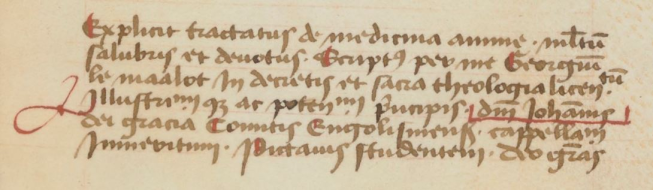 Explicit tractatus de medicina anime · mltũ
salubris et deuotus · Scriptꝰ per me Georgiũ
le maalot In decretis et sacra theologia licentiatũ
Illustrimi qꝫ ac potenmi principis dm̃ Iohannis
dei gracia Comitis Engolismensis · cappellanũ
Inmeritum · Pictauis studentem · deo gr̃as